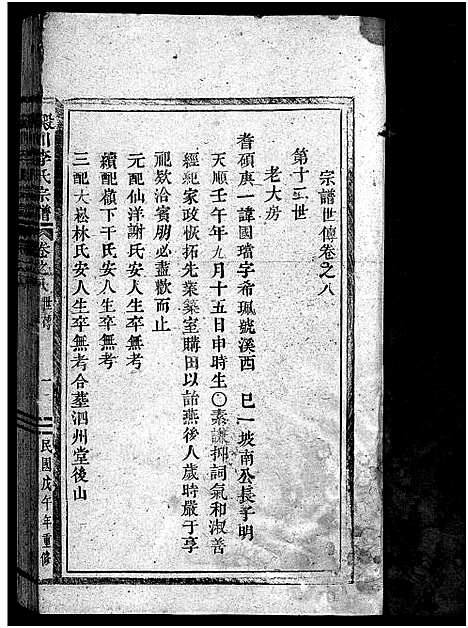 宗譜世傳卷之八
第十二世
老大房
耆碩庚一諱國璿字希珮號溪西 巳一坡南公長子明
天順壬午年九月十五日申時生○素謙抑詞氣和淑善
經紀家政恢拓先業築室購田以詒燕後人歲時嚴于享
祀歘洽賓朋必盡歡而止
元配仙洋謝氏安人生卒無考
續配嶺下干氏安人生卒無考
三配大崧林氏安人生卒無考合墓泗州堂後山
川李氏宗譜 卷之八 世傳 一 民國戊午年重修